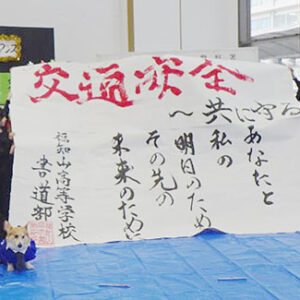 交通安全
〜共に守る
あなたと
私の
明日のため
その先の
未来のために
福知山高等学校
書道部